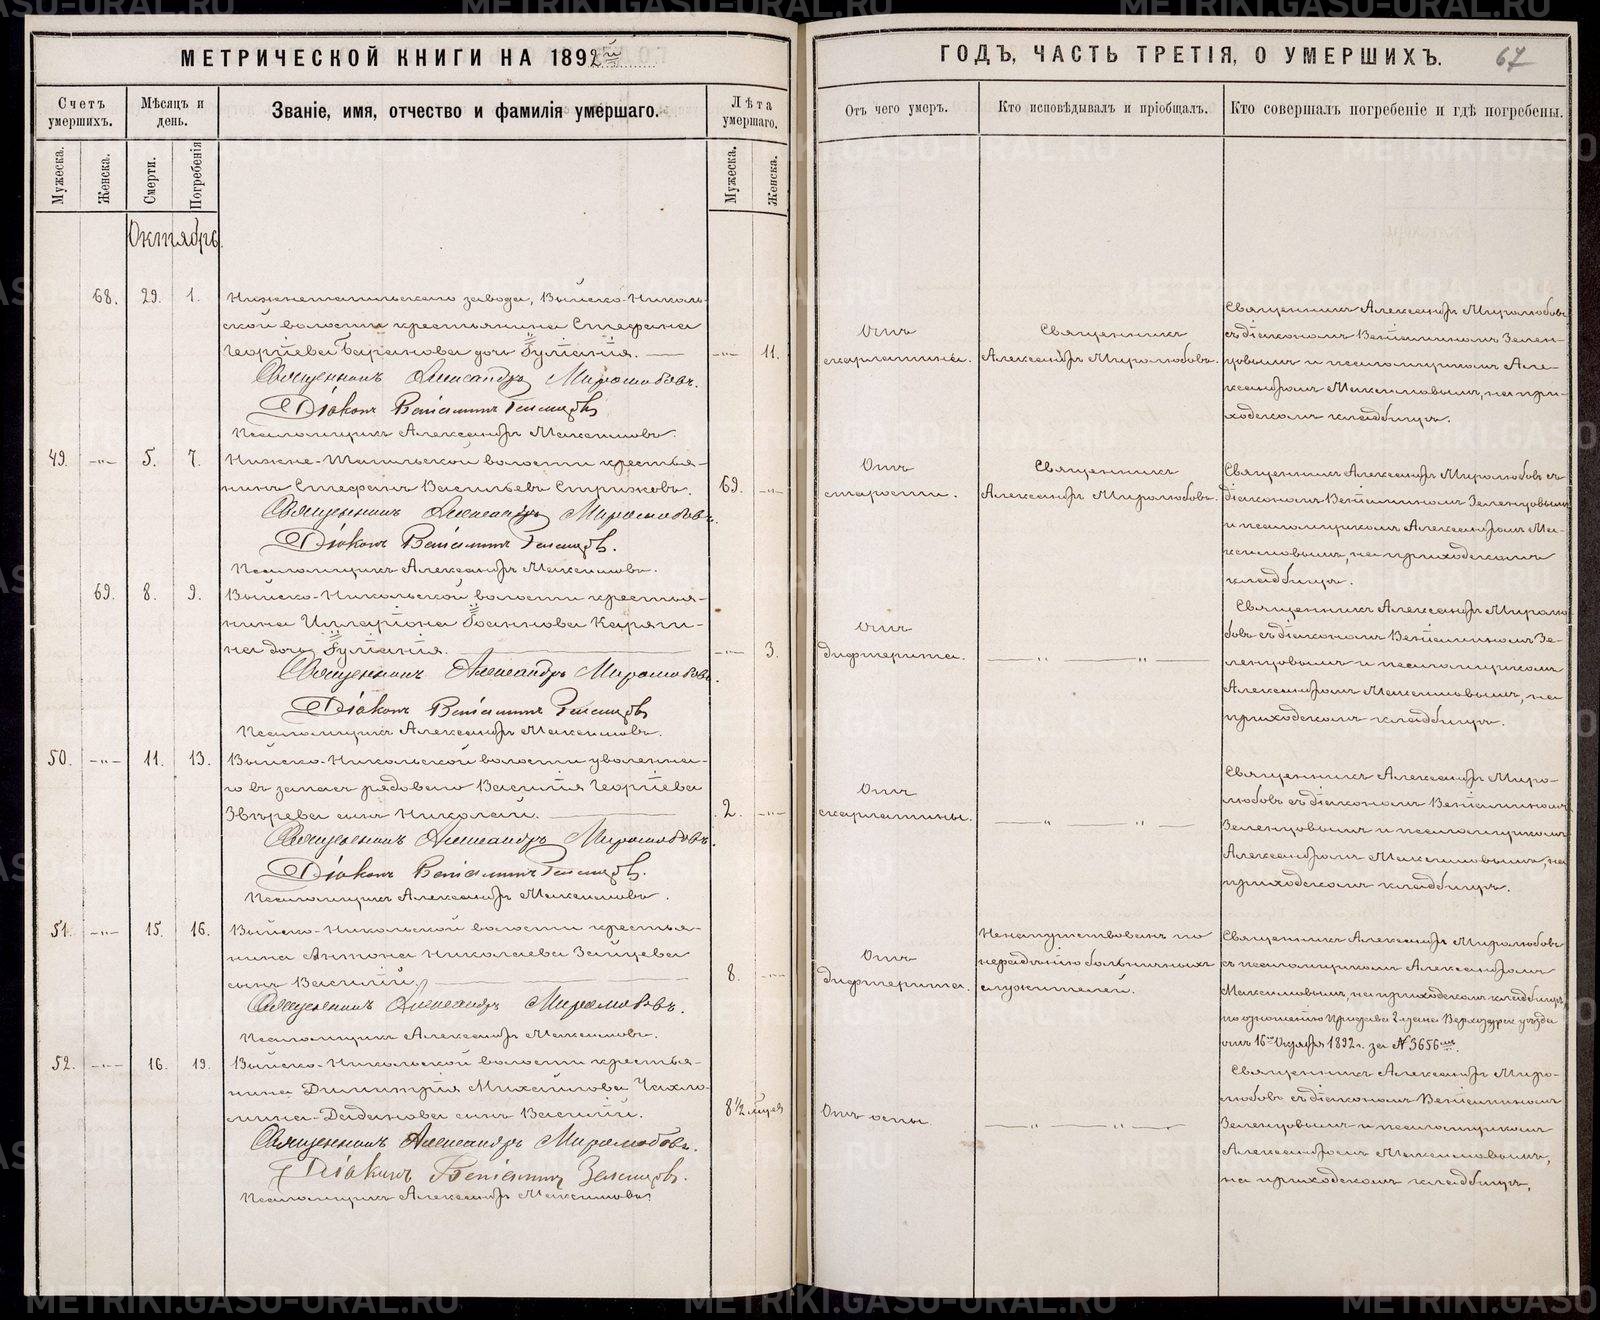 МЕТРИЧЕСКОЙ КНИГИ НА 1892й
Счетъ умершихъ.
Мѣсяцъ и день.
Званіе, имя, отчество и фамилія умершаго.
Лѣта умершаго.
Мужеска.
Женска.
Смерти.
Погребенія
Мужеска.
Женска.
Октябрь.
68. 29. 1.
Нижнетагильскаго завода, Выйско-Николь-
ской волости крестьянина Стефана
Георгіева Баранова дочь Іуліанія. — „ 11.
Священникъ Александръ Миролюбовъ.
Діаконъ Веніаминъ Зеленцовъ
Псаломщикъ Александръ Максимовъ.
49. „ 5. 7.
Нижне-Тагильской волости крестья-
нинъ Стефанъ Васильевъ Стрижовъ. 69. „
Священникъ Александръ Миролюбовъ.
Діаконъ Веніаминъ Зеленцовъ.
Псаломщикъ Александръ Максимовъ.
69. 8. 9.
Выйско-Никольской волости крестья-
нина Илларіона Іоаннова Каряги-
на дочь Іуліанія. „ 3.
Священникъ Александръ Миролюбовъ.
Діаконъ Веніаминъ Зеленцовъ
Псаломщикъ Александръ Максимовъ.
50. „ 11. 13.
Выйско-Никольской волости уволенна-
го въ запасъ рядоваго Василія Георгіева
Звѣрева сынъ Николай. 2. „
Священникъ Александръ Миролюбовъ.
Діаконъ Веніаминъ Зеленцовъ.
Псаломщикъ Александръ Максимовъ.
51. „ 15. 16.
Выйско-Никольской волости крестья-
нина Антона Николаева Зайцева
сынъ Василій. 8. „
Священникъ Александръ Миролюбовъ.
Псаломщикъ Александръ Максимовъ.
52. „ 16. 19.
Выйско-Никольской волости крестья-
нина Димитрія Михайлова
сынъ Василій. 8 1/2
Священникъ Александръ Миролюбовъ.
Діаконъ Веніаминъ Зеленцовъ.
Псаломщикъ Александръ Максимовъ
ГОДЪ, ЧАСТЬ ТРЕТІЯ, О УМЕРШИХЪ.
67
Отъ чего умеръ.
Кто исповѣдывалъ и пріобщалъ.
Кто совершалъ погребеніе и гдѣ погребены.
Отъ
скарлатины.
Священникъ
Александръ Миролюбовъ.
Священникъ Александръ Миролюбовъ
съ діакономъ Веніаминомъ Зелен-
цовымъ и псаломщикомъ Але-
ксандромъ Максимовымъ, на при-
ходскомъ кладбищѣ.
Отъ
старости.
Священникъ
Александръ Миролюбовъ.
Священникъ Александръ Миролюбовъ съ
діакономъ Веніаминомъ Зеленцовымъ
и псаломщикомъ Александромъ Ма-
ксимовымъ, на приходскомъ
кладбищѣ.
Отъ
дифтерита.
„ „
Священникъ Александръ Миролю-
бовъ съ діакономъ Веніаминомъ Зе-
ленцовымъ и псаломщикомъ
Александромъ Максимовымъ, на
приходскомъ кладбищѣ.
Отъ
скарлатины.
„ „
Священникъ Александръ Миро-
любовъ съ діакономъ Веніаминомъ
Зеленцовымъ и псаломщикомъ
Александромъ Максимовымъ, на
приходскомъ кладбищѣ.
Отъ
дифтерита.
Ненапутствованъ по
нерадѣнію больничныхъ
служителей.
Священникъ Александръ Миролюбовъ
съ псаломщикомъ Александромъ
Максимовымъ, на приходскомъ кладбищѣ,
по отношенію Пристава 2 стана Верхотурск. уѣзда
отъ 16го Октября 1892 г. за № 3656мъ.
Отъ оспы.
„ „
Священникъ Александръ Миро-
любовъ съ діакономъ Веніаминомъ
Зеленцовымъ и псаломщикомъ
Александромъ Максимовымъ,
на приходскомъ кладбищѣ.
METRIKI.GASO-URAL.RU